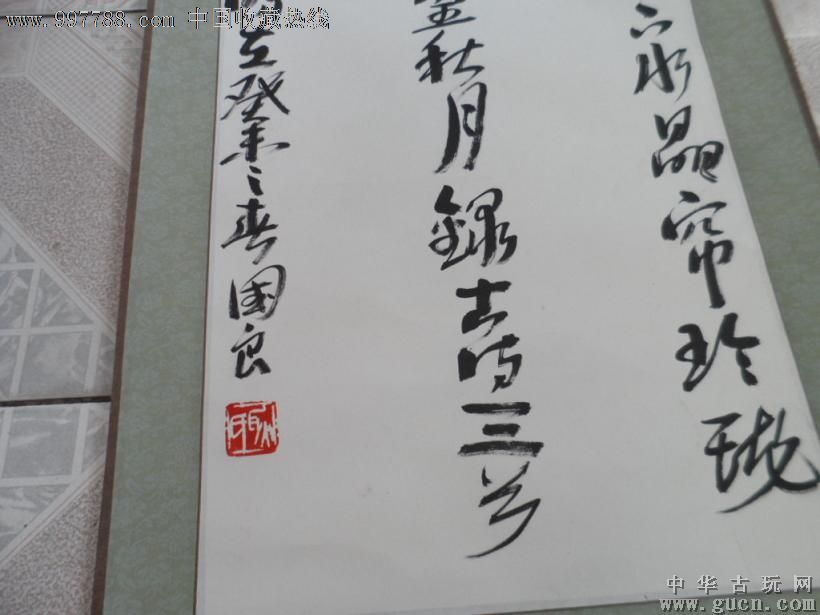 www.997788.com 中国收藏热线
下水晶帘玲珑
望秋月錄古诗三首
癸未之春国良
中华古玩网
www.gucn.com